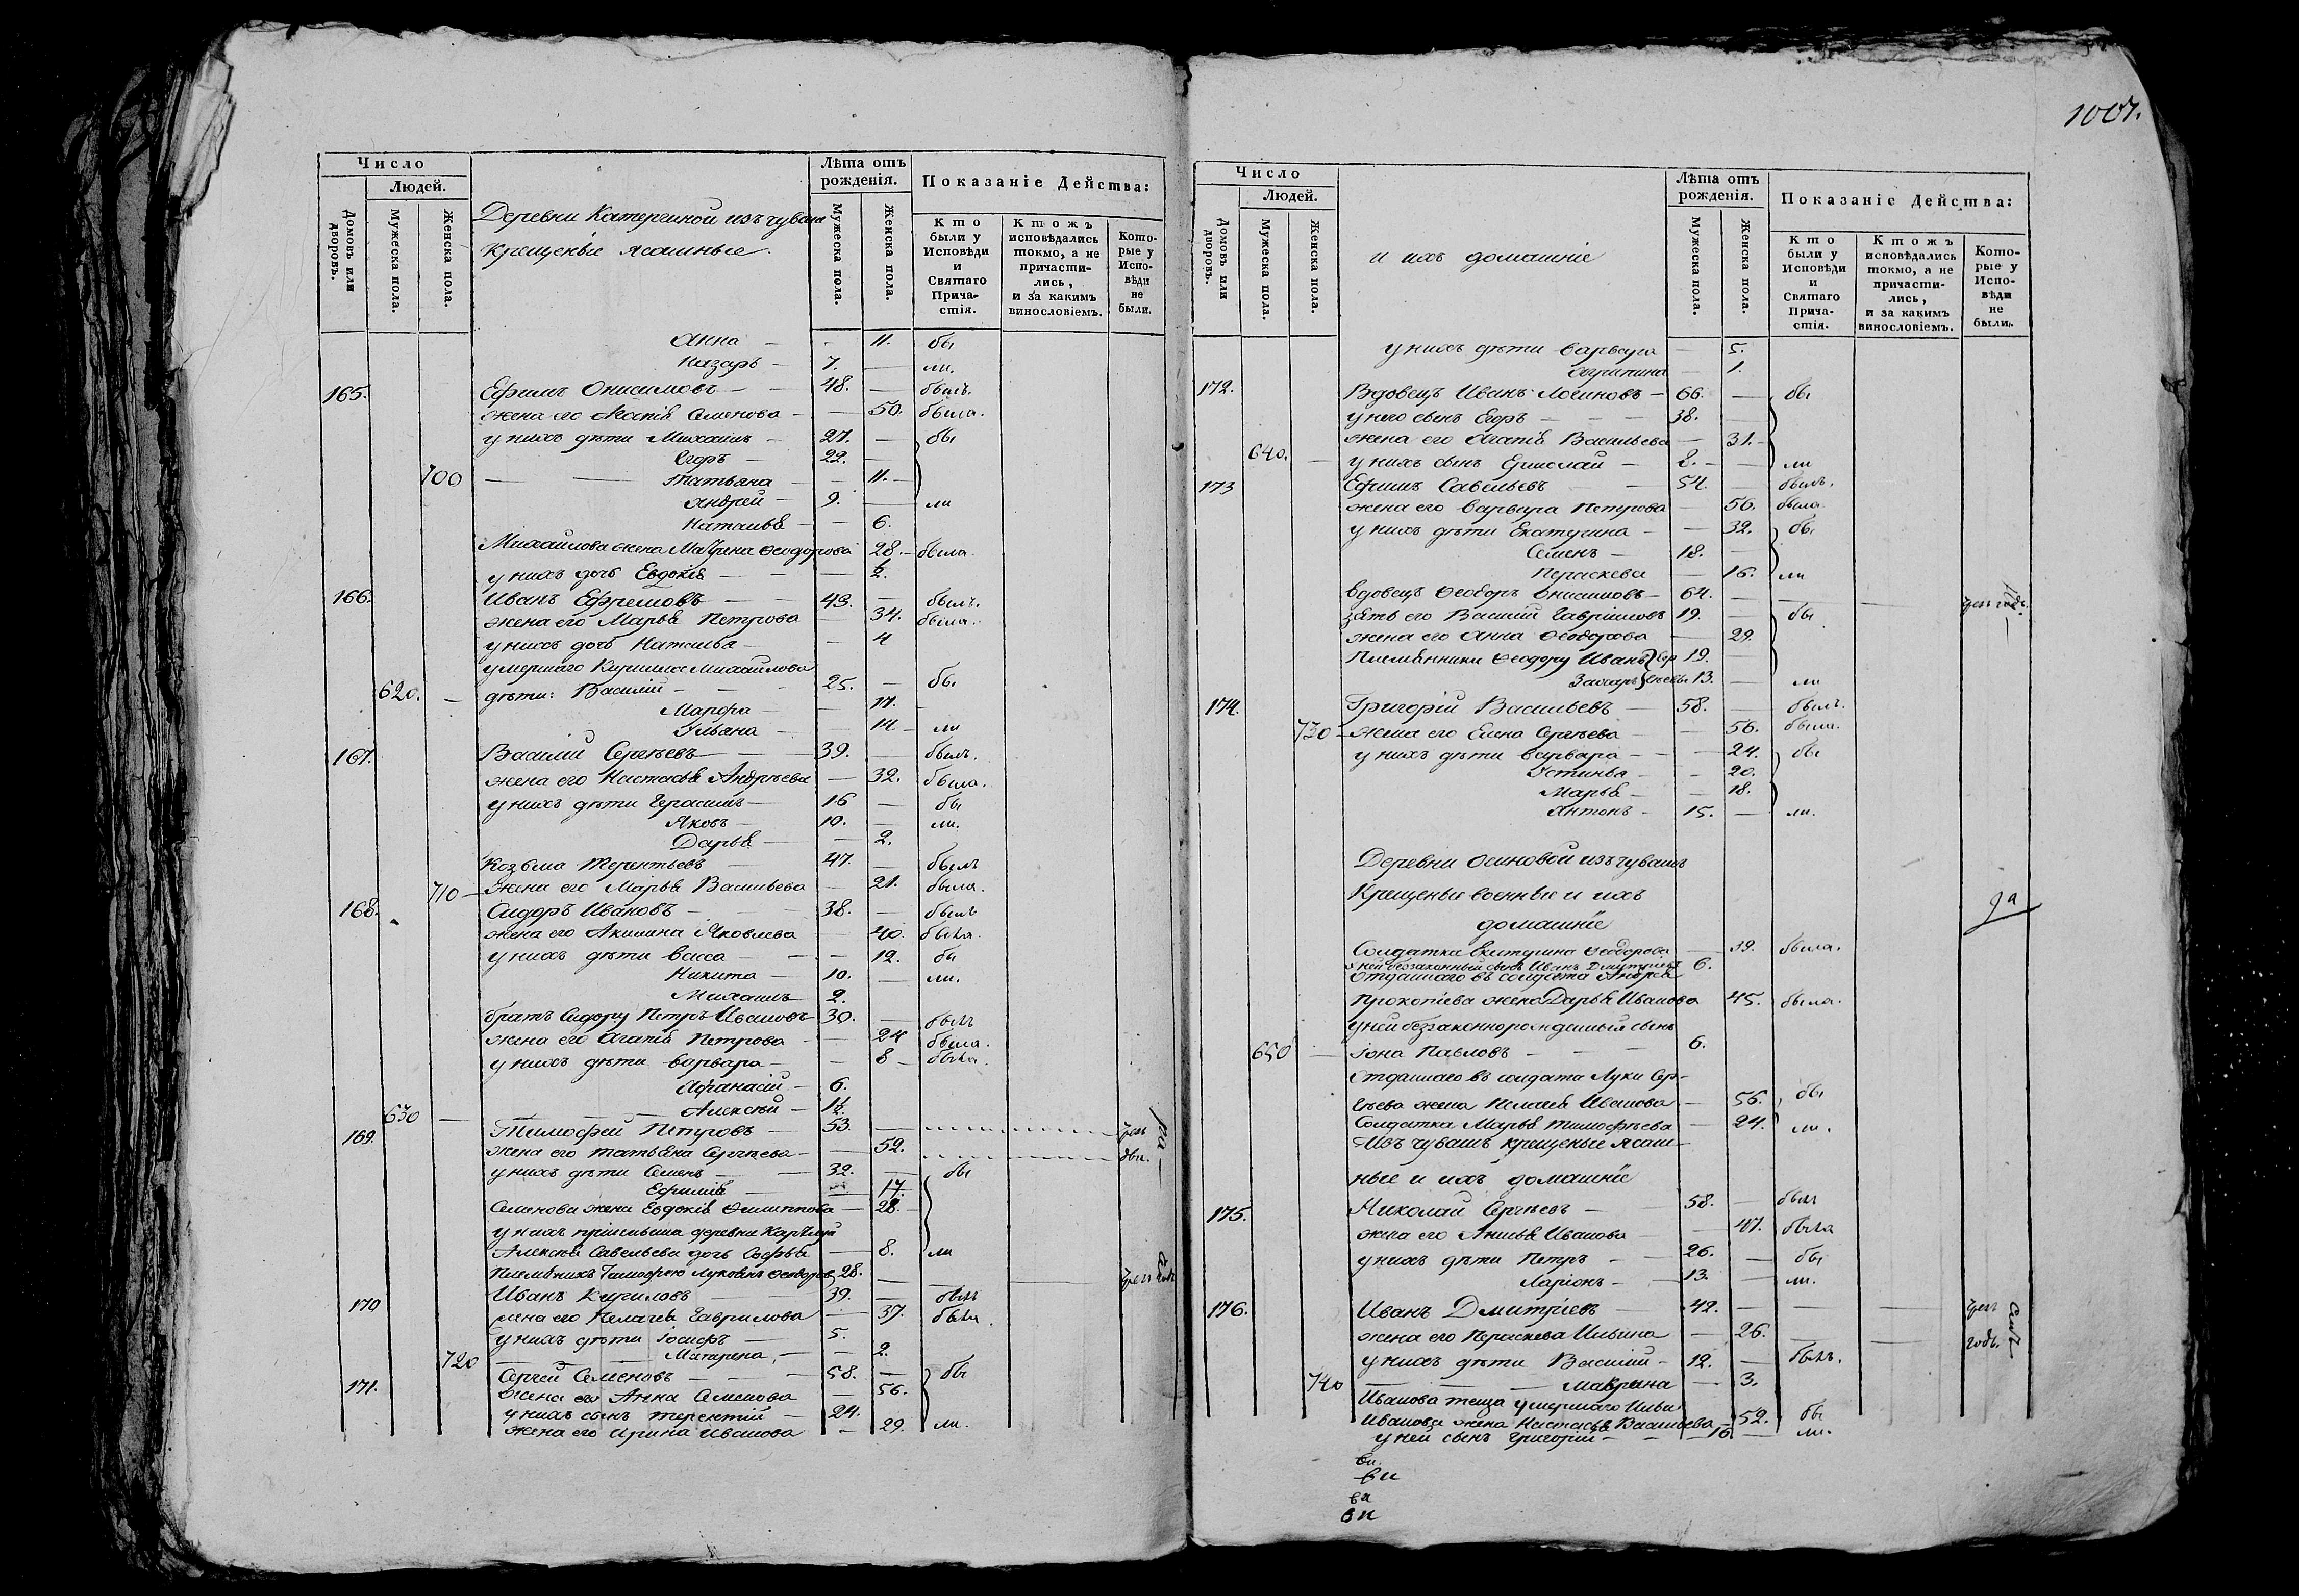 Число
Людей.
Домовъ или дворовъ.
Мужеска пола.
Женска пола.
Деревни Катергиной изъ чувашъ
крещеные ясашные
Лѣта отъ рожденія.
Мужеска пола.
Женска пола.
Показаніе Дѣйства:
Кто были у Исповѣди и Святаго Причастія.
Ктожъ исповѣдались токмо, а не причастились, и за какимъ винословіемъ.
Которые у Исповѣди не были.
Анна — - 11. бы
Назаръ — 7. — ли.
165. Ефимъ Онисимовъ — 48. — былъ.
жена его Агапія Семенова — 50. была.
у нихъ дѣти Михаилъ — 27. — бы
Егоръ — 22. —
700 — Татьяна — 11. —
Андрей — 9. — ли
Наталья — 6.
Михайлова жена Матрена Ѳеодорова 28. — была
у нихъ дочь Евдокія — ½.
166. Иванъ Ефремовъ — 43. — былъ.
жена его Марья Петрова — 34. была.
у нихъ дочь Наталья — 4
умершаго Кирилла Михайлова
620. — дѣти: Василій — 25. — бы
Марфа — 17.
Ульяна — 14. — ли
167. Василій Сергѣевъ — 39. — былъ.
жена его Настасья Андрѣева — 32. была.
у нихъ дѣти Герасимъ — 16 — бы
Яковъ — 10. — ли.
Дарья — 2.
Козьма Терентьевъ — 47. — былъ
710 — жена его Марья Васильева — 21. была.
168. Сидоръ Ивановъ — 38. — былъ
жена его Акилина Яковлева — 40. была.
у нихъ дѣти Васса — 12. бы
Никита — 10. — ли.
Михаилъ 2.
братъ Сидору Петръ Ивановъ 30. — былъ
жена его Агапія Петрова — 24 была.
у нихъ дѣти Варвара — 8 — была.
Афанасій — 6.
630 — Алексѣй — 1½.
169. Тимофей Петровъ — 53. —
жена его Татьяна Сергѣева — 52.
у нихъ дѣти Семенъ — 32. — бы
Ефимія — 17.
Семенова жена Евдокія Филиппова — 28. —
у нихъ пріемыша деревни
Алексѣя Савельева дочь Софья — 8. ли
Племянникъ Тимофею Лукоянъ Ѳеодоровъ 28. —
170 Иванъ Кириловъ — 39. — былъ
жена его Пелагея Гаврилова — 37. была.
у нихъ дѣти Іосифъ — 5.
720 — Матрена, — 2.
171. Сергей Семеновъ — 58. — бы
жена его Анна Семенова — 56.
у нихъ сынъ Терентій — 24.
жена его Ирина Иванова — 29. ли.
1007.
Число
Людей.
Домовъ или дворовъ.
Мужеска пола.
Женска пола.
и ихъ домашніе
Лѣта отъ рожденія.
Мужеска пола.
Женска пола.
Показаніе Дѣйства:
Кто были у Исповѣди и Святаго Причастія.
Ктожъ исповѣдались токмо, а не причастились, и за какимъ винословіемъ.
Которые у Исповѣди не были.
у нихъ дѣти Варвара — 5.
— 1.
172. Вдовецъ Иванъ Логиновъ — 66. — бы
у него сынъ Егоръ — 38. —
жена его Агапія Васильева — 31. —
640. — у нихъ сынъ Ермолай — 2. — ли
173 Ефимъ Савельевъ — 54. — былъ.
жена его Варвара Петрова — 56. была
у нихъ дѣти Екатерина — 32. бы
Семенъ — 18. —
Пераскева — 16. ли
вдовецъ Ѳеодоръ Онисимовъ — 64. —
зять его Василій Гавріиловъ 19. — бы
жена его Анна Ѳеодорова — 29.
Племянники Ѳеодору Иванъ 19. —
Захаръ 13. — ли
174. Григорій Васильевъ — 58. — былъ.
730 — жена его Елена Сергѣева — 56. была.
у нихъ дѣти Варвара — 24. бы
Устинья — 20.
Марья — 18.
Антонъ — 15. — ли.
Деревни Осиновой изъ чувашъ
Крещеные военные и ихъ
домашніе
Солдатка Екатерина Ѳеодорова — 39. была.
у ней беззаконный сынъ Иванъ Дмитріевъ 6.
Отданнаго въ солдата Андрея
Прокопіева жена Дарья Иванова 45. была.
у ней беззаконнорожденный сынъ
650 — Іона Павловъ — 6.
Отданнаго въ солдата Луки Сер-
гѣева жена Пелагея Иванова — 56. бы
Солдатка Марья Тимофѣева — 24. ли.
Изъ чувашъ крещеные ясаш-
ные и ихъ домашніе
175. Николай Сергѣевъ — 58. — былъ
жена его Анисья Иванова — 47. была
у нихъ дѣти Петръ — 26. — бы
Ларіонъ — 13. — ли.
176. Иванъ Дмитріевъ — 42. —
жена его Пераскева Ильина — 26.
у нихъ дѣти Василій — 12. — былъ.
740 — Маврина — 3.
Иванова теща умершаго Ильи
Иванова жена Настасья Васильева — 52. бы
у ней сынъ Григорій — 16 — ли.